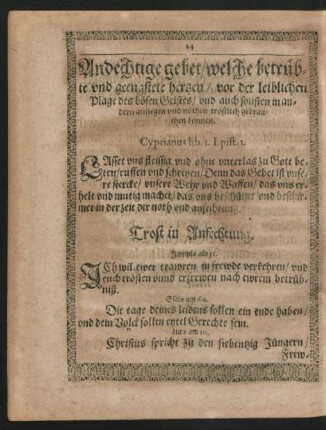 14
Andechtige gebet/welche betrüb-
te vnd geengstete hertzen/ vor der leiblichen
Plage des bösen Geistes/ vnd auch sonsten in an-
dern anliegen vnd nöthen tröstlich gebrau-
chen können.
Cyprianus lib. 1. Epist. 1.
LAsset vns fleissig vnd ohne vnterlas zu Gott be-
ten/ruffen vnd schreyen/ Denn das Gebet ist vnse-
re stercke/ vnsere Wehr vnd Waffen/ das vns er-
helt vnd mutig machet/ das vns beschützet vnd beschir-
met in der zeit der noth vnd anfechtung.
Trost in Anfechtung.
Jeremia am 31.
ICh wil ewer trawren in frewde verkehren/ vnd
euch trösten vnnd erfrewen nach ewrem betrüb-
niß.
Esaie am 60.
Die tage deines leidens sollen ein ende haben/
vnd dein Volck sollen eytel Gerechte sein.
Luce am 10.
Christus spricht zu den siebentzig Jüngern/
Frew-